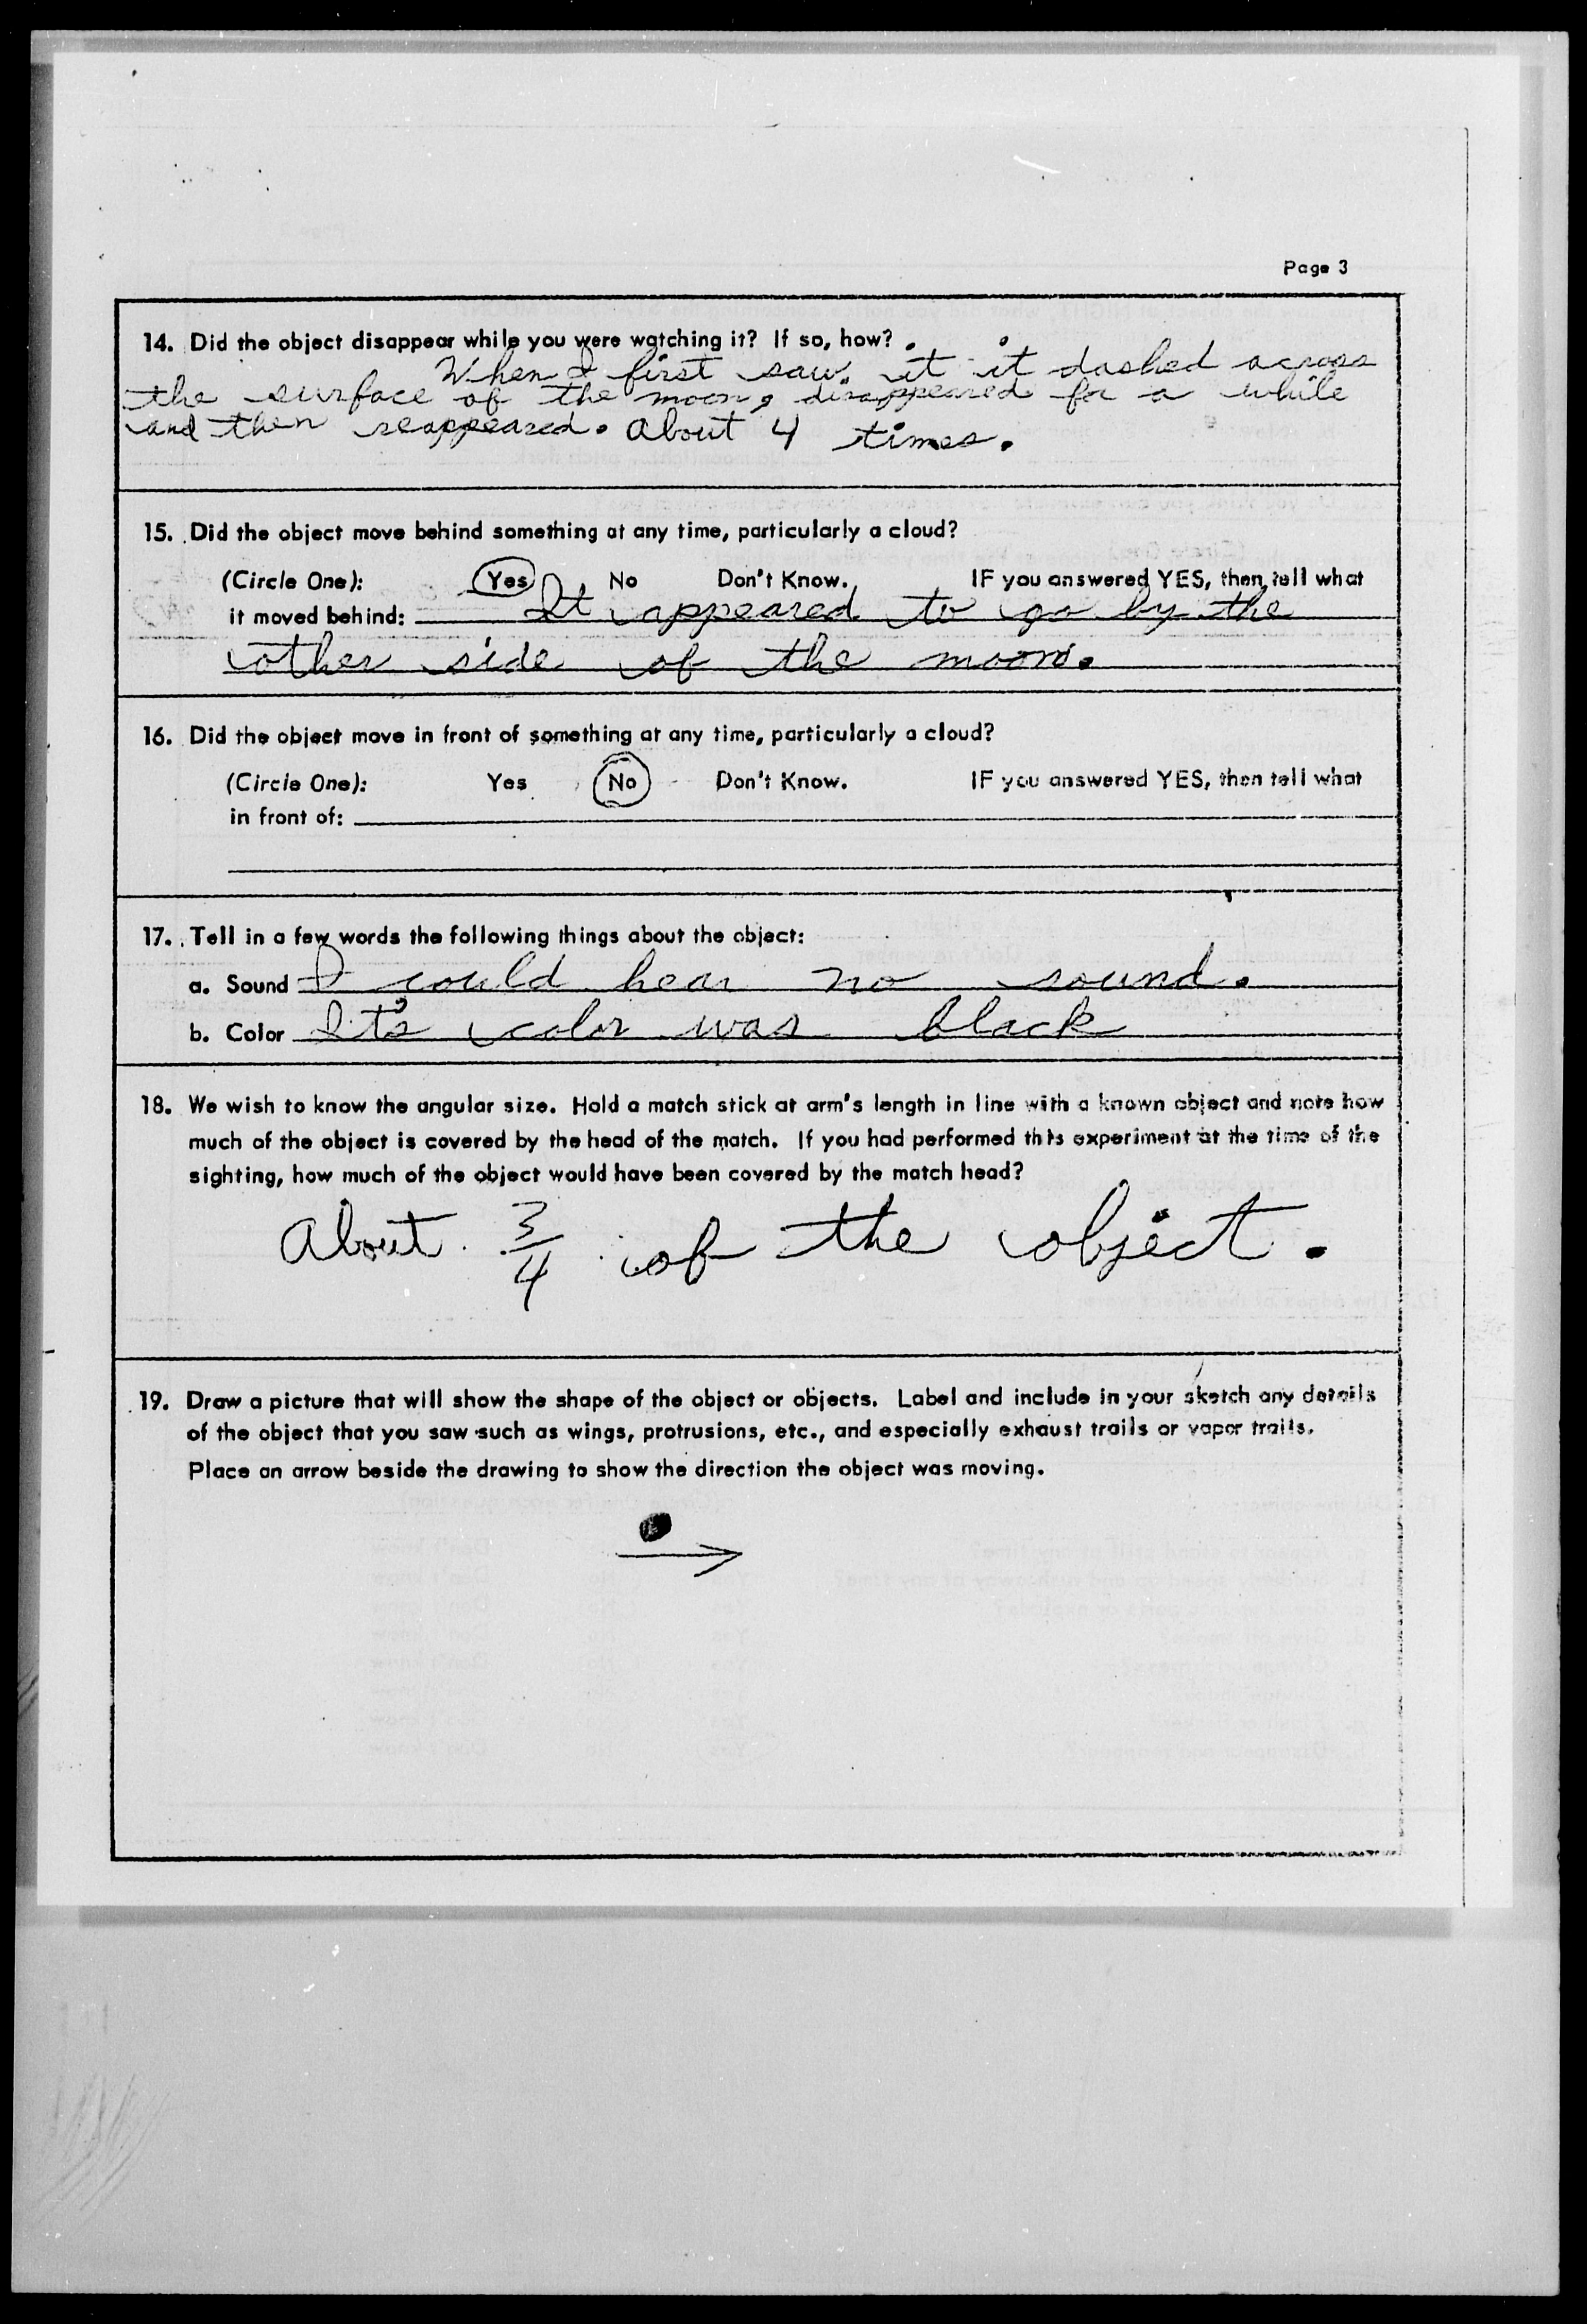 Page 3
14. Did the object disappear while you were watching it? If so, how?
When I first saw it it dashed across
the surface of the moon, disappeared for a while
and then reappeared. About 4 times.
15. Did the object move behind something at any time, particularly a cloud?
(Circle One): Yes No Don't Know. IF you answered YES, then tell what
it moved behind: It appeared to go by the
other side of the moon.
16. Did the object move in front of something at any time, particularly a cloud?
(Circle One): Yes No Don't Know. IF you answered YES, then tell what
in front of:
17. Tell in a few words the following things about the object:
a. Sound I could hear no sound.
b. Color It's color was black
18. We wish to know the angular size. Hold a match stick at arm's length in line with a known object and note how
much of the object is covered by the head of the match. If you had performed this experiment at the time of the
sighting, how much of the object would have been covered by the match head?
About 3/4 of the object.
19. Draw a picture that will show the shape of the object or objects. Label and include in your sketch any details
of the object that you saw such as wings, protrusions, etc., and especially exhaust trails or vapor trails.
Place an arrow beside the drawing to show the direction the object was moving.